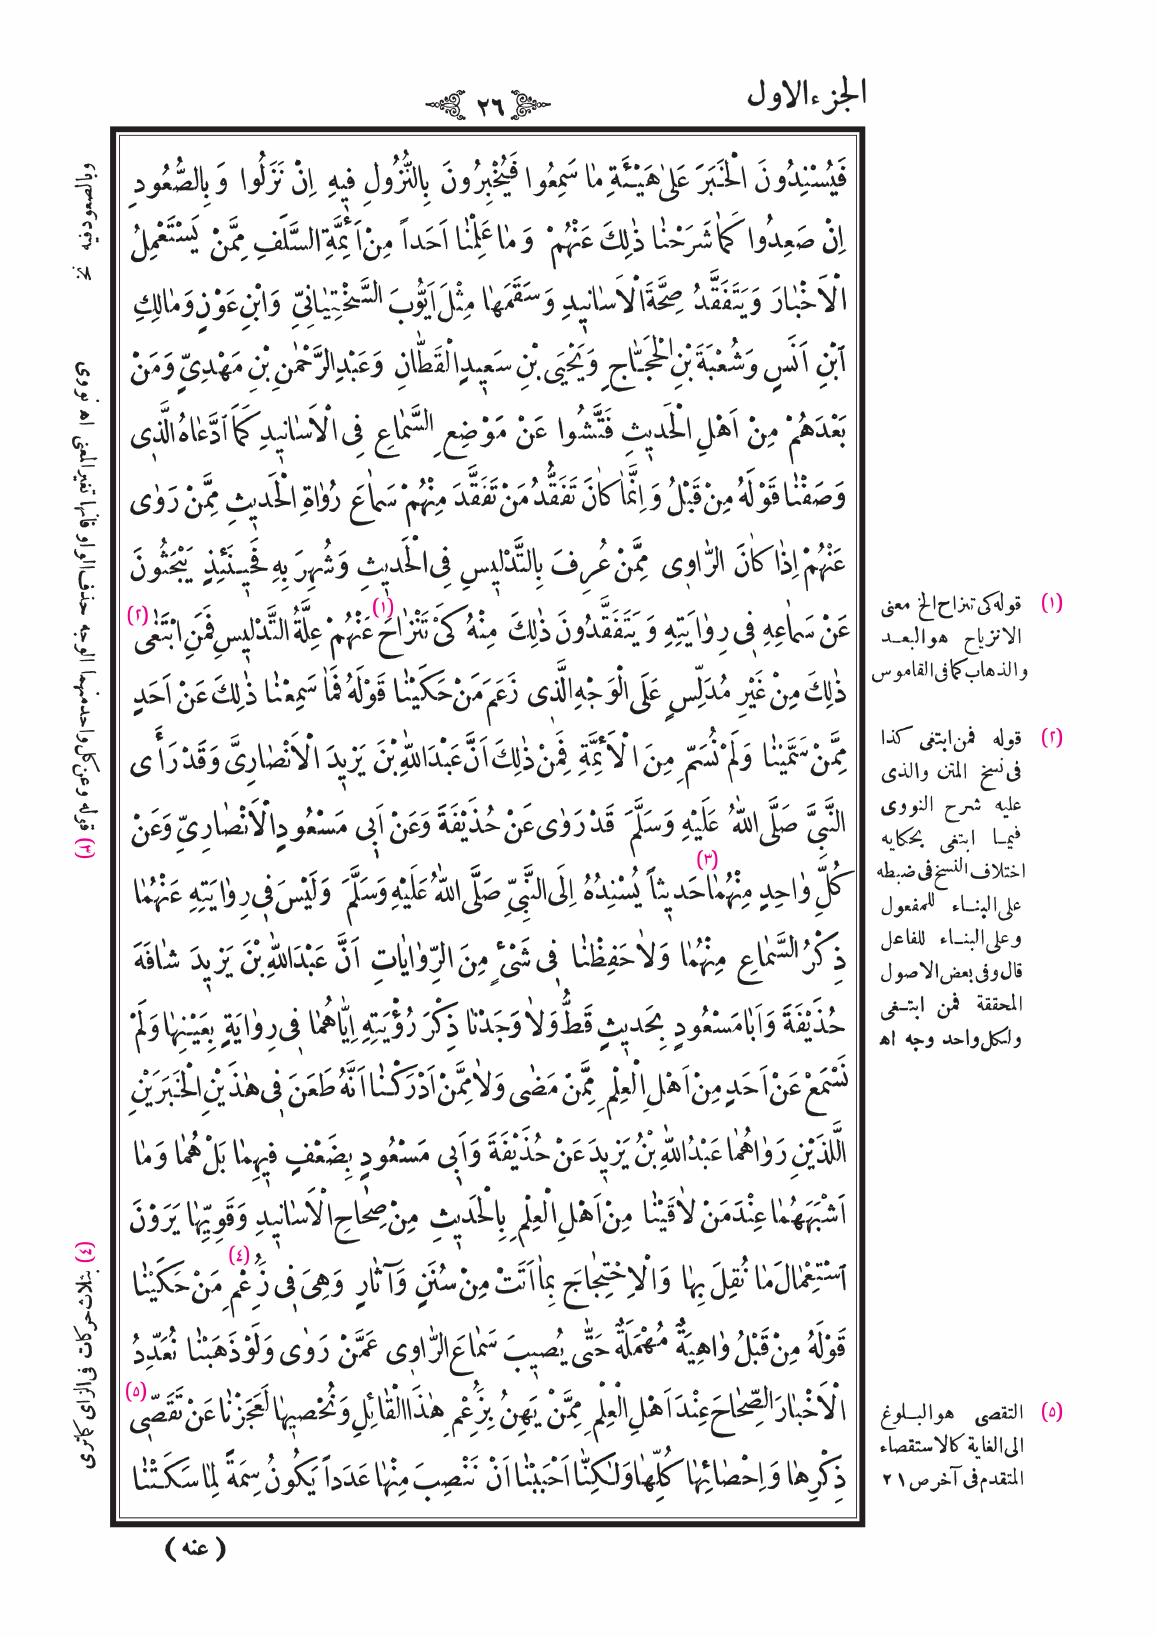 الجزء الاول
٢٦
فَيُسْنِدُونَ الْخَبَرَ عَلىٰ هَيْئَةِ مٰا سَمِعُوا فَيُخْبِرُونَ بِالنُّزُولِ فِيهِ اِنْ نَزَلُوا وَبِالصُّعُودِ
اِنْ صَعِدُوا كَمَا شَرَحْنٰا ذٰلِكَ عَنْهُمْ وَمٰا عَلِمْنٰا اَحَداً مِنْ اَئِمَّةِ السَّلَفِ مِمَّنْ يَسْتَعْمِلُ
الْاَخْبٰارَ وَيَتَفَقَّدُ صِحَّةَ الْاَسٰانِيدِ وَسَقَمَهٰا مِثْلَ اَيُّوبَ السَّخْتِيٰانِيِّ وَابْنِ عَوْنٍ وَمٰالِكِ
ابْنِ اَنَسٍ وَشُعْبَةَ بْنِ الْحَجّٰاجِ وَيَحْيَى بْنِ سَعِيدٍ الْقَطّٰانِ وَعَبْدِ الرَّحْمٰنِ بْنِ مَهْدِيٍّ وَمَنْ
بَعْدَهُمْ مِنْ اَهْلِ الْحَدِيثِ فَتَّشُوا عَنْ مَوْضِعِ السَّمٰاعِ فِى الْاَسٰانِيدِ كَمَا ادَّعٰاهُ الَّذِى
وَصَفْنٰا قَوْلَهُ مِنْ قَبْلُ وَاِنَّمٰا كٰانَ تَفَقُّدُ مَنْ تَفَقَّدَ مِنْهُمْ سَمٰاعَ رُوٰاةِ الْحَدِيثِ مِمَّنْ رَوٰى
عَنْهُمْ اِذٰا كٰانَ الرّٰاوِى مِمَّنْ عُرِفَ بِالتَّدْلِيسِ فِى الْحَدِيثِ وَشُهِرَ بِهِ فَحِينَئِذٍ يَبْحَثُونَ
عَنْ سَمٰاعِهِ فِى رِوٰايَتِهِ وَيَتَفَقَّدُونَ ذٰلِكَ مِنْهُ كَىْ تَنْزٰاحَ (١) عَنْهُمْ عِلَّةُ التَّدْلِيسِ فَمَنِ ابْتَغٰى (٢)
ذٰلِكَ مِنْ غَيْرِ مُدَلِّسٍ عَلَى الْوَجْهِ الَّذِى زَعَمَ مَنْ حَكَيْنٰا قَوْلَهُ فَمٰا سَمِعْنٰا ذٰلِكَ عَنْ اَحَدٍ
مِمَّنْ سَمَّيْنٰا وَلَمْ نُسَمِّ مِنَ الْاَئِمَّةِ فَمِنْ ذٰلِكَ اَنَّ عَبْدَ اللّٰهِ بْنَ يَزِيدَ الْاَنْصٰارِىَّ وَقَدْ رَأَى
النَّبِىَّ صَلَّى اللّٰهُ عَلَيْهِ وَسَلَّمَ قَدْ رَوٰى عَنْ حُذَيْفَةَ وَعَنْ اَبِى مَسْعُودٍ الْاَنْصٰارِىِّ وَعَنْ
كُلِّ وٰاحِدٍ مِنْهُمٰا (٣) حَدِيثاً يُسْنِدُهُ اِلَى النَّبِىِّ صَلَّى اللّٰهُ عَلَيْهِ وَسَلَّمَ وَلَيْسَ فِى رِوٰايَتِهِ عَنْهُمٰا
ذِكْرُ السَّمٰاعِ مِنْهُمٰا وَلاٰ حَفِظْنٰا فِى شَىْءٍ مِنَ الرِّوٰايٰاتِ اَنَّ عَبْدَ اللّٰهِ بْنَ يَزِيدَ شٰافَهَ
حُذَيْفَةَ وَاَبٰا مَسْعُودٍ بِحَدِيثٍ قَطُّ وَلاٰ وَجَدْنٰا ذِكْرَ رُؤْيَتِهِ اِيّٰاهُمٰا فِى رِوٰايَةٍ بِعَيْنِهٰا وَلَمْ
نَسْمَعْ عَنْ اَحَدٍ مِنْ اَهْلِ الْعِلْمِ مِمَّنْ مَضٰى وَلاٰ مِمَّنْ اَدْرَكْنٰا اَنَّهُ طَعَنَ فِى هٰذَيْنِ الْخَبَرَيْنِ
الَّلذَيْنِ رَوٰاهُمٰا عَبْدُ اللّٰهِ بْنُ يَزِيدَ عَنْ حُذَيْفَةَ وَاَبِى مَسْعُودٍ بِضَعْفٍ فِيهِمٰا بَلْ هُمٰا وَمٰا
اَشْبَهَهُمٰا عِنْدَ مَنْ لاٰقَيْنٰا مِنْ اَهْلِ الْعِلْمِ بِالْحَدِيثِ مِنْ صِحٰاحِ الْاَسٰانِيدِ وَقَوِيِّهٰا يَرَوْنَ
اسْتِعْمٰالَ مٰا نُقِلَ بِهٰا وَالْاِحْتِجٰاجَ بِمٰا اَتَتْ مِنْ سُنَنٍ وَآثٰارٍ وَهِىَ فِى زَعْمِ (٤) مَنْ حَكَيْنٰا
قَوْلَهُ مِنْ قَبْلُ وٰاهِيَةٌ مُهْمَلَةٌ حَتّٰى يُصِيبَ سَمٰاعَ الرّٰاوِى عَمَّنْ رَوٰى وَلَوْ ذَهَبْنٰا نُعَدِّدُ
الْاَخْبٰارَ الصِّحٰاحَ عِنْدَ اَهْلِ الْعِلْمِ مِمَّنْ يَهِنُ بِزَعْمِ هٰذَا الْقٰائِلِ وَنُحْصِيهٰا لَعَجَزْنٰا عَنْ تَقَصِّى (٥)
ذِكْرِهٰا وَاِحْصٰائِهٰا كُلِّهٰا وَلٰكِنّٰا اَحْبَبْنٰا اَنْ نَنْصِبَ مِنْهٰا عَدَداً يَكُونُ سِمَةً لِمٰا سَكَتْنٰا
( عنه )
(١) قوله كى تنزاح الخ معنى
الانزياح هو البعد
والذهاب كما فى القاموس
(٢) قوله فمن ابتغى كذا
فى نسخ المتن والذى
عليه شرح النووى
فيما ابتغى بحكايه
اختلاف النسخ فى ضبطه
على البناء للمفعول
وعلى البناء للفاعل
قال وفى بعض الاصول
المحققة فمن ابتغى
ولكل واحد وجه اه
(٥) التقصى هو البلوغ
الى الغاية كالاستقصاء
المتقدم فى آخر ص ٢١
وبالصعود فيه نخ
(٣) قوله وعن كل واحد منهما الوجه حذف الواو فانها تغير المعنى اه نووى
(٤) بثلاث حركات فى الزاى كما ترى